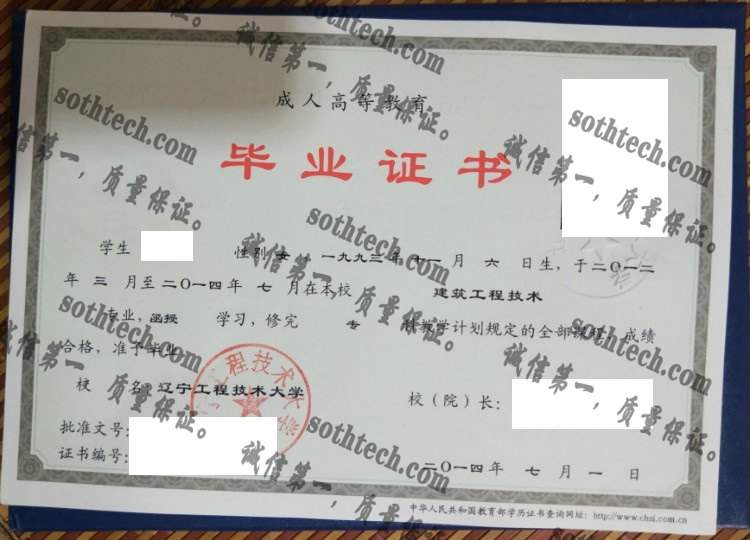 成人高等教育
毕业证书
学生 性别 女 一九九三年 十一 月 六 日生，于二〇一二
年 三 月至二〇一四年 七 月在本校 建筑工程技术
专业，函授 学习，修完 专 科教学计划规定的全部课程，成绩
合格，准予毕业
校 名：辽宁工程技术大学
校（院）长：
批准文号：
证书编号：
二〇一四年 七 月 一 日
中华人民共和国教育部学历证书查询网址：http://www.chsi.com.cn
程技术大
sothtech.com
诚信第一，质量保证。
sothtech.com
诚信第一，质量保证。
sothtech.com
诚信第一，质量保证。
sothtech.com
诚信第一，质量保证。
sothtech.com
诚信第一，质量保证。
sothtech.com
诚信第一，质量保证。
sothtech.com
诚信第一，质量保证。